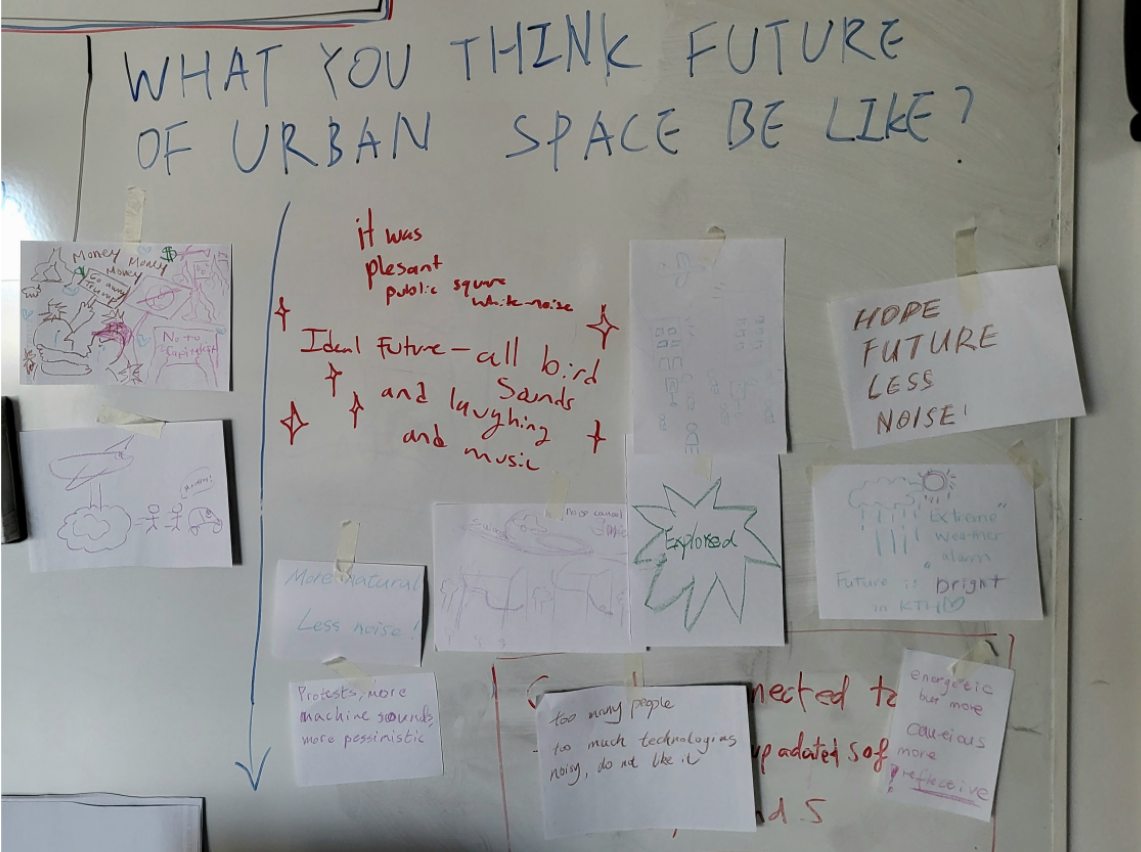 WHAT YOU THINK FUTURE
OF URBAN SPACE BE LIKE?
Money Money
Money
$
Go away
No to
Capitalist
it was
plesant
public square
white-noise
Ideal Future – all bird
Sounds
and laughing
and music
HOPE
FUTURE
LESS
NOISE!
noise cancel
Explored
"Extreme"
weather
alarm"
Future is bright
in KTH
More natural
Less noise!
Protests, more
machine sounds,
more pessimistic
too many people
too much technologies
noisy, do not like it
nected to
upadated sof
d 5
energetic
but more
cautious
more
reflective